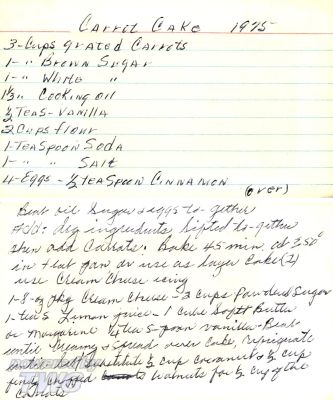 Carrot Cake 1975
3-Cups grated Carrots
1- " Brown Sugar
1- " White "
1⅓ " Cooking oil
½ Teas-Vanilla
2 Cups flour
1-Teaspoon Soda
1- " " Salt
4-Eggs - ½ teaspoon Cinnamon
(over)
Beat oil Sugar & eggs to-gether
Add: dry ingredients sifted to-gether
then add Carrots. Bake 45 min. at 350°
in flat pan or use as layer Cake (2)
use Cream Cheese icing
1-8-oz pkg Cream Cheese - 3 cups Powdered Sugar
1-teas Lemon juice - 1 Cube Soft Butter
or Margarine teaspoon vanilla - Beat
until Creamy & Spread over Cake, refrigerate
substitute ½ cup Coconut & ½ cup
finely chopped Walnuts for ½ cup of the
Carrots